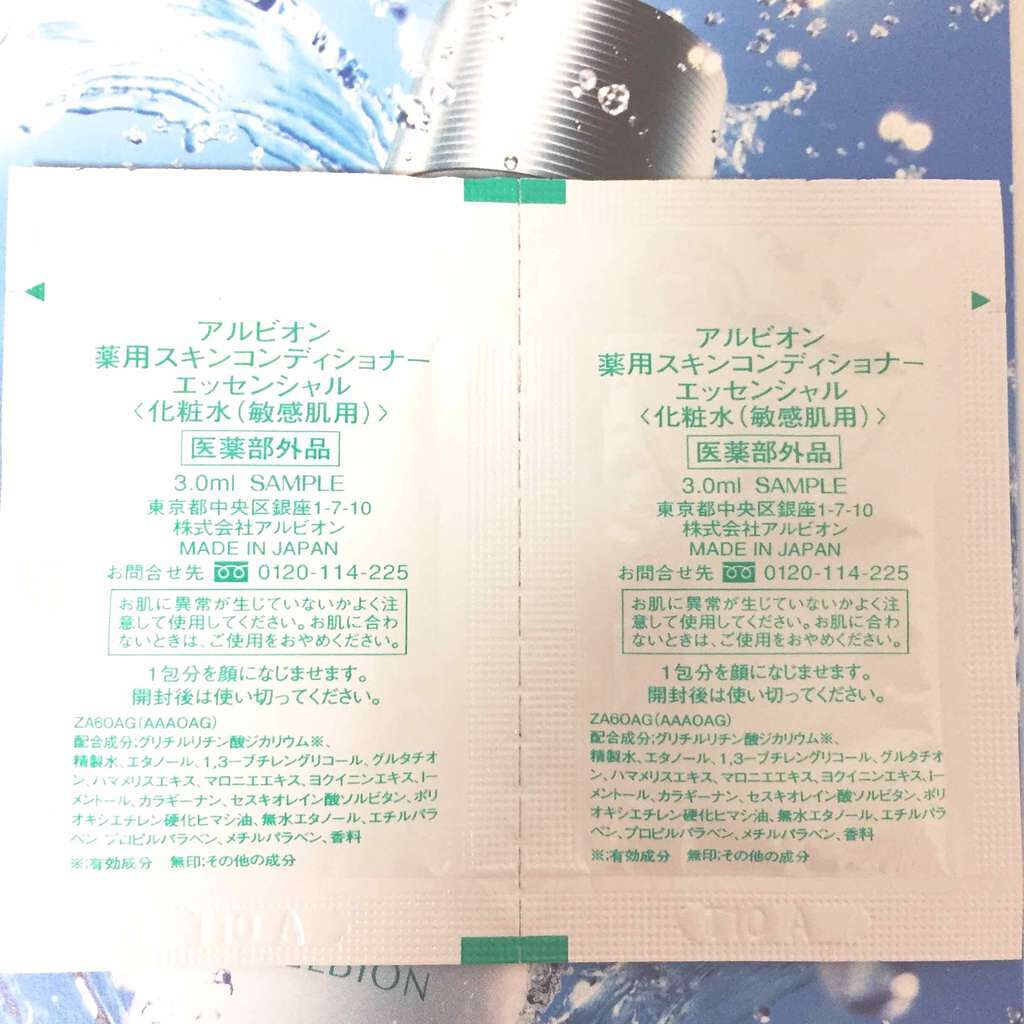 アルビオン
薬用スキンコンディショナー
エッセンシャル
〈化粧水(敏感肌用)〉
医薬部外品
3.0ml SAMPLE
東京都中央区銀座1-7-10
株式会社アルビオン
MADE IN JAPAN
お問合せ先 0120-114-225
お肌に異常が生じていないかよく注
意して使用してください。お肌に合わ
ないときは、ご使用をおやめください。
1包分を顔になじませます。
開封後は使い切ってください。
ZA60AG(AAA0AG)
配合成分;グリチルリチン酸ジカリウム※、
精製水、エタノール、1,3-ブチレングリコール、グルタチオ
ン、ハマメリスエキス、マロニエエキス、ヨクイニンエキス、l-
メントール、カラギーナン、セスキオレイン酸ソルビタン、ポリ
オキシエチレン硬化ヒマシ油、無水エタノール、エチルパラ
ベン、プロピルパラベン、メチルパラベン、香料
※;有効成分 無印;その他の成分
アルビオン
薬用スキンコンディショナー
エッセンシャル
〈化粧水(敏感肌用)〉
医薬部外品
3.0ml SAMPLE
東京都中央区銀座1-7-10
株式会社アルビオン
MADE IN JAPAN
お問合せ先 0120-114-225
お肌に異常が生じていないかよく注
意して使用してください。お肌に合わ
ないときは、ご使用をおやめください。
1包分を顔になじませます。
開封後は使い切ってください。
ZA60AG(AAA0AG)
配合成分;グリチルリチン酸ジカリウム※、
精製水、エタノール、1,3-ブチレングリコール、グルタチオ
ン、ハマメリスエキス、マロニエエキス、ヨクイニンエキス、l-
メントール、カラギーナン、セスキオレイン酸ソルビタン、ポリ
オキシエチレン硬化ヒマシ油、無水エタノール、エチルパラ
ベン、プロピルパラベン、メチルパラベン、香料
※;有効成分 無印;その他の成分